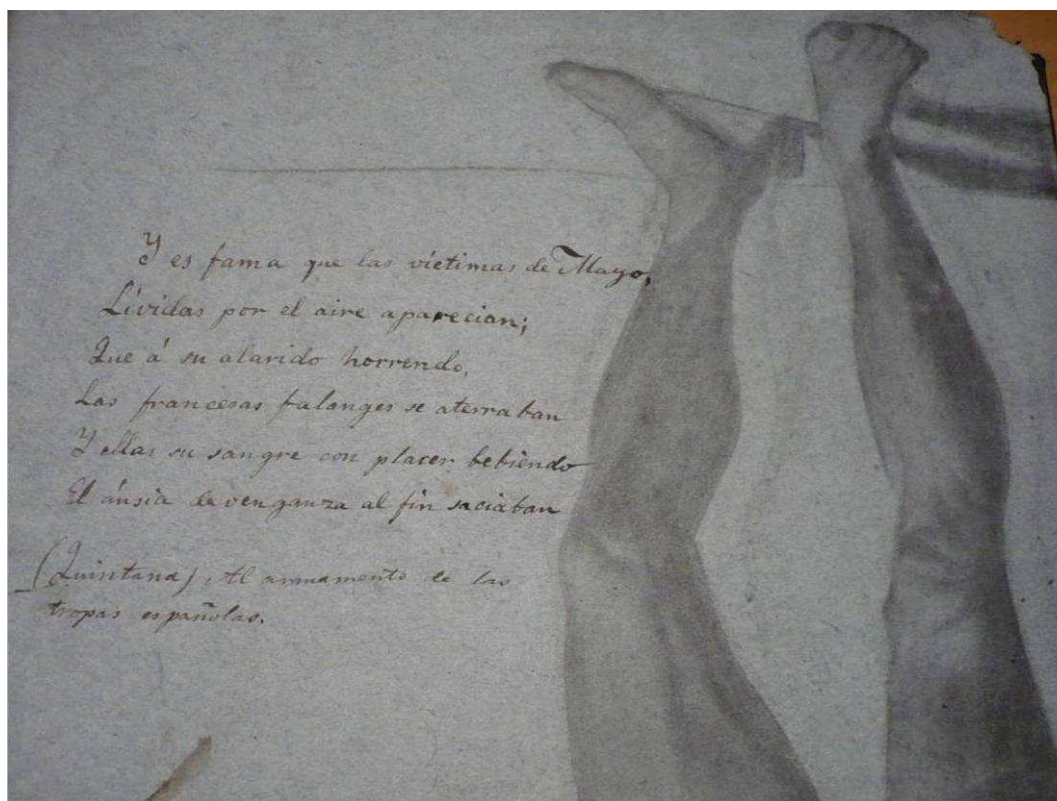 Y es fama que las víctimas de Mayo,
Lívidas por el aire aparecian;
Que á su alarido horrendo,
Las francesas falanges se aterraban
Y ellas su sangre con placer bebiendo
El ánsia de venganza al fin saciaban
(Quintana) Al armamento de las
tropas españolas.